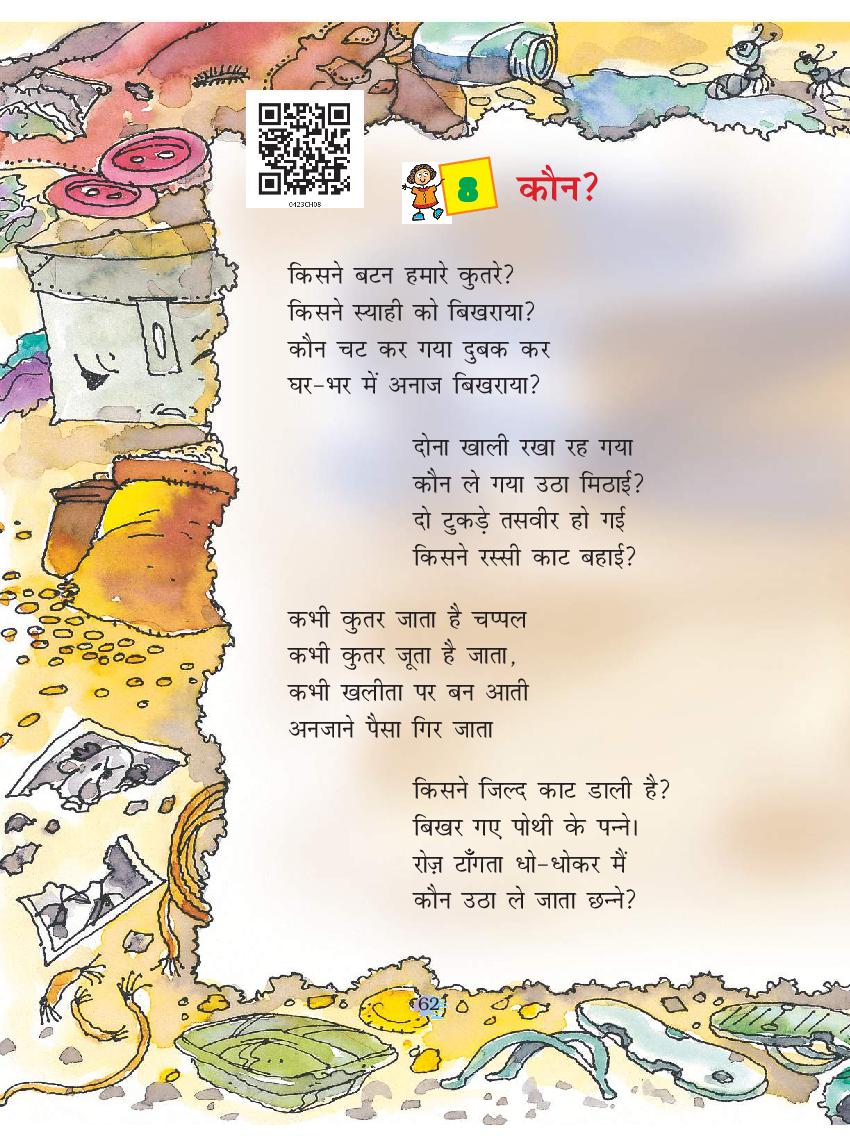 0423CH08
8 कौन?
किसने बटन हमारे कुतरे?
किसने स्याही को बिखराया?
कौन चट कर गया दुबक कर
घर-भर में अनाज बिखराया?
दोना खाली रखा रह गया
कौन ले गया उठा मिठाई?
दो टुकड़े तसवीर हो गई
किसने रस्सी काट बहाई?
कभी कुतर जाता है चप्पल
कभी कुतर जूता है जाता,
कभी खलीता पर बन आती
अनजाने पैसा गिर जाता
किसने जिल्द काट डाली है?
बिखर गए पोथी के पन्ने।
रोज़ टाँगता धो-धोकर मैं
कौन उठा ले जाता छन्ने?
62